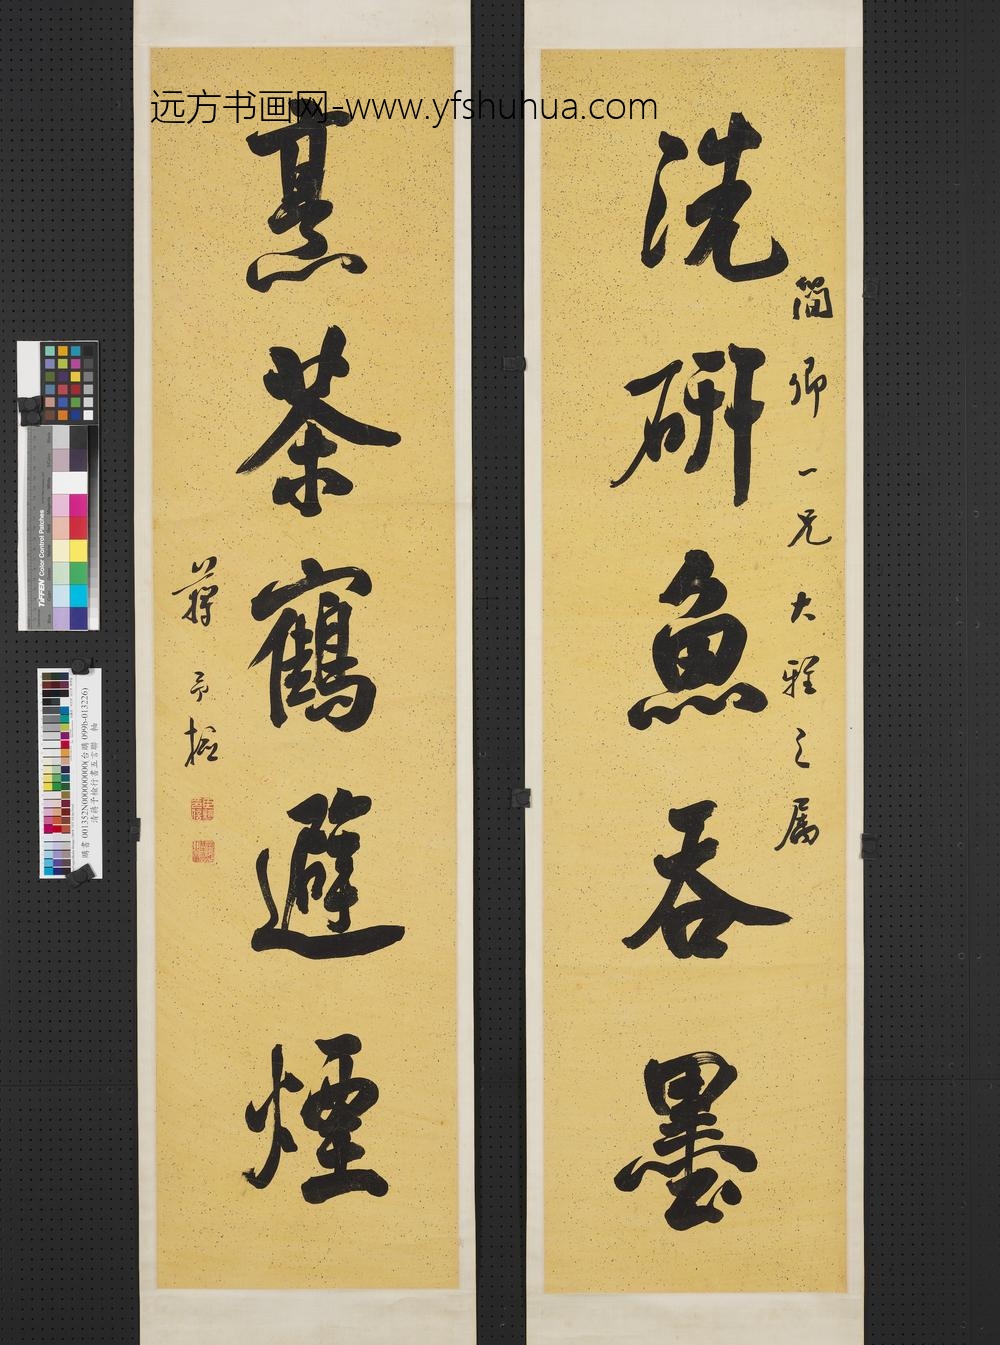 远方书画网-www.yfshuhua.com
洗硏魚吞墨
簡卿一兄大雅之属
烹茶鶴避煙
蔣予檢
TIFFEN Color Control Patches
購書 001352N000000000(台購 099b-013226)
清蔣予檢行書五言聯 軸